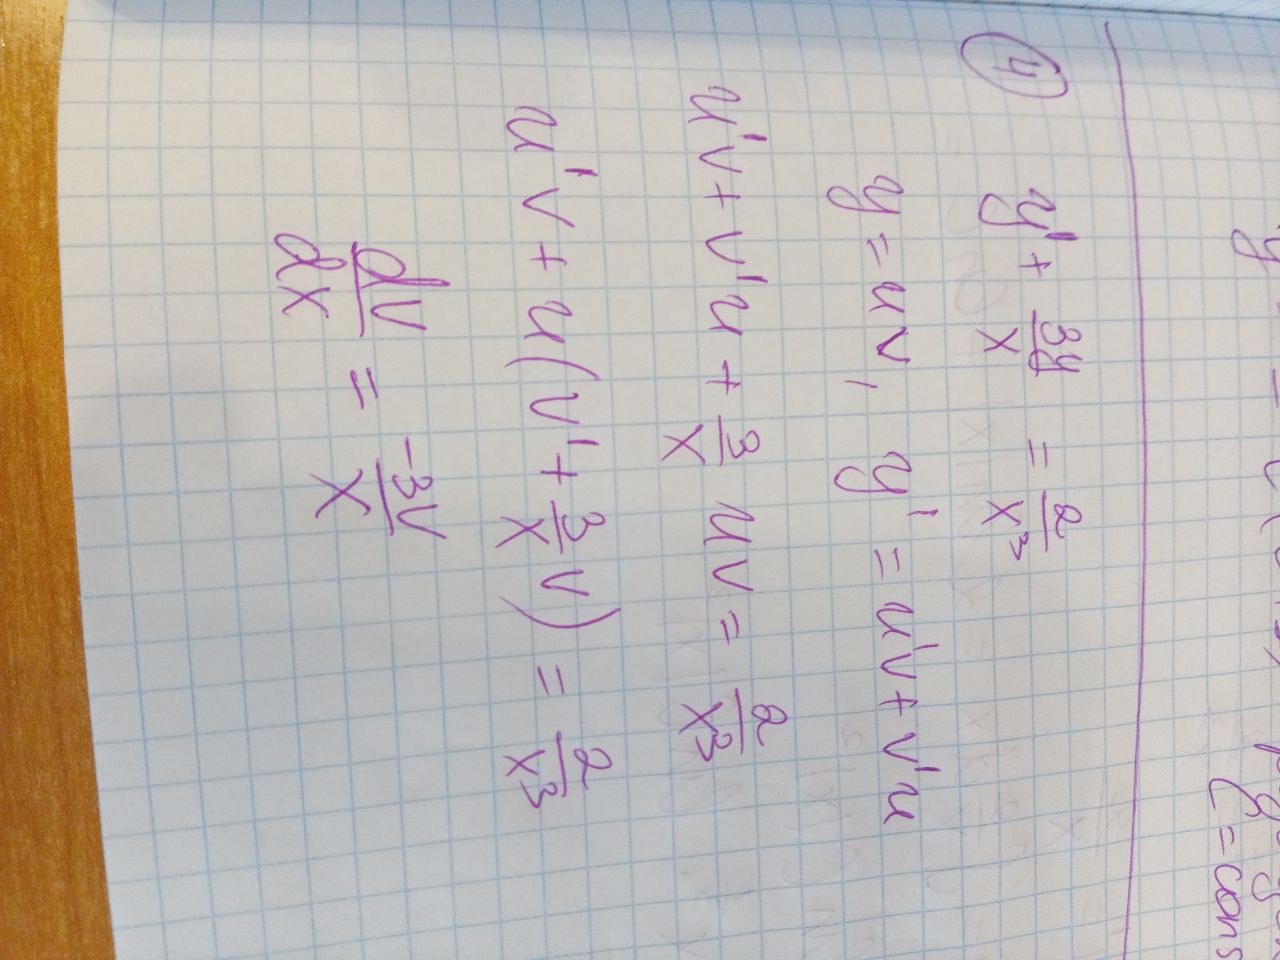 C = cons
④ y' + 3y/x = 2/x³
y = uv, y' = u'v + v'u
u'v + v'u + 3/x uv = 2/x³
u'v + u(v' + 3/x v) = 2/x³
dv/dx = -3v/x